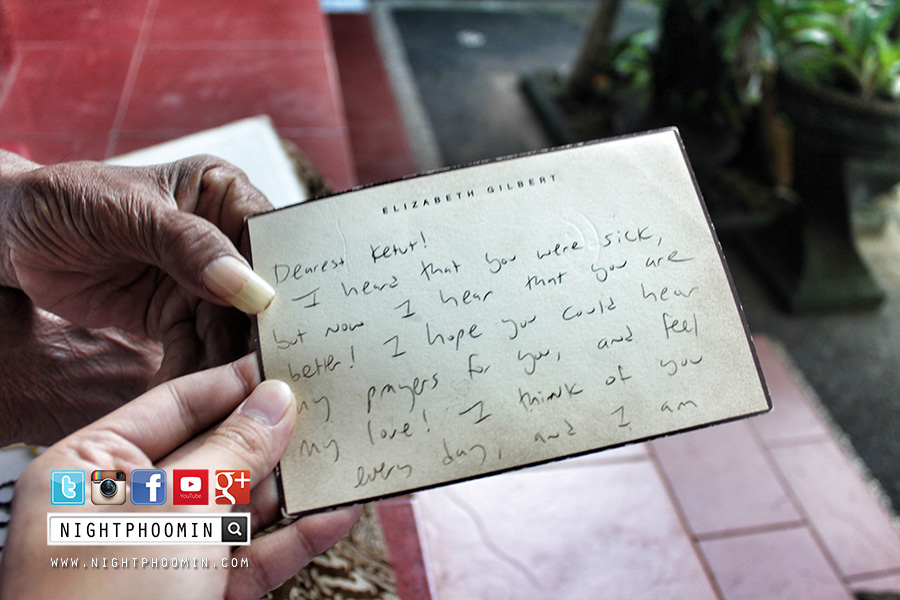 ELIZABETH GILBERT
Dearest Ketut!
I heard that you were sick,
but now I hear that you are
better! I hope you could hear
my prayers for you, and feel
my love! I think of you
every day, and I am
YouTube
g+
NIGHTPHOOMIN
WWW.NIGHTPHOOMIN.COM